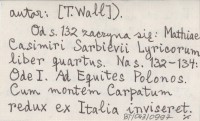 autor: [T. Wall]).
Od s. 132 zaczyna się: Mathiae
Casimiri Sarbievii Lyricorum
liber quartus. Na s. 132-134:
Ode I. Ad Equites Polonos.
Cum montem Carpatum
redux ex Italia inviseret.